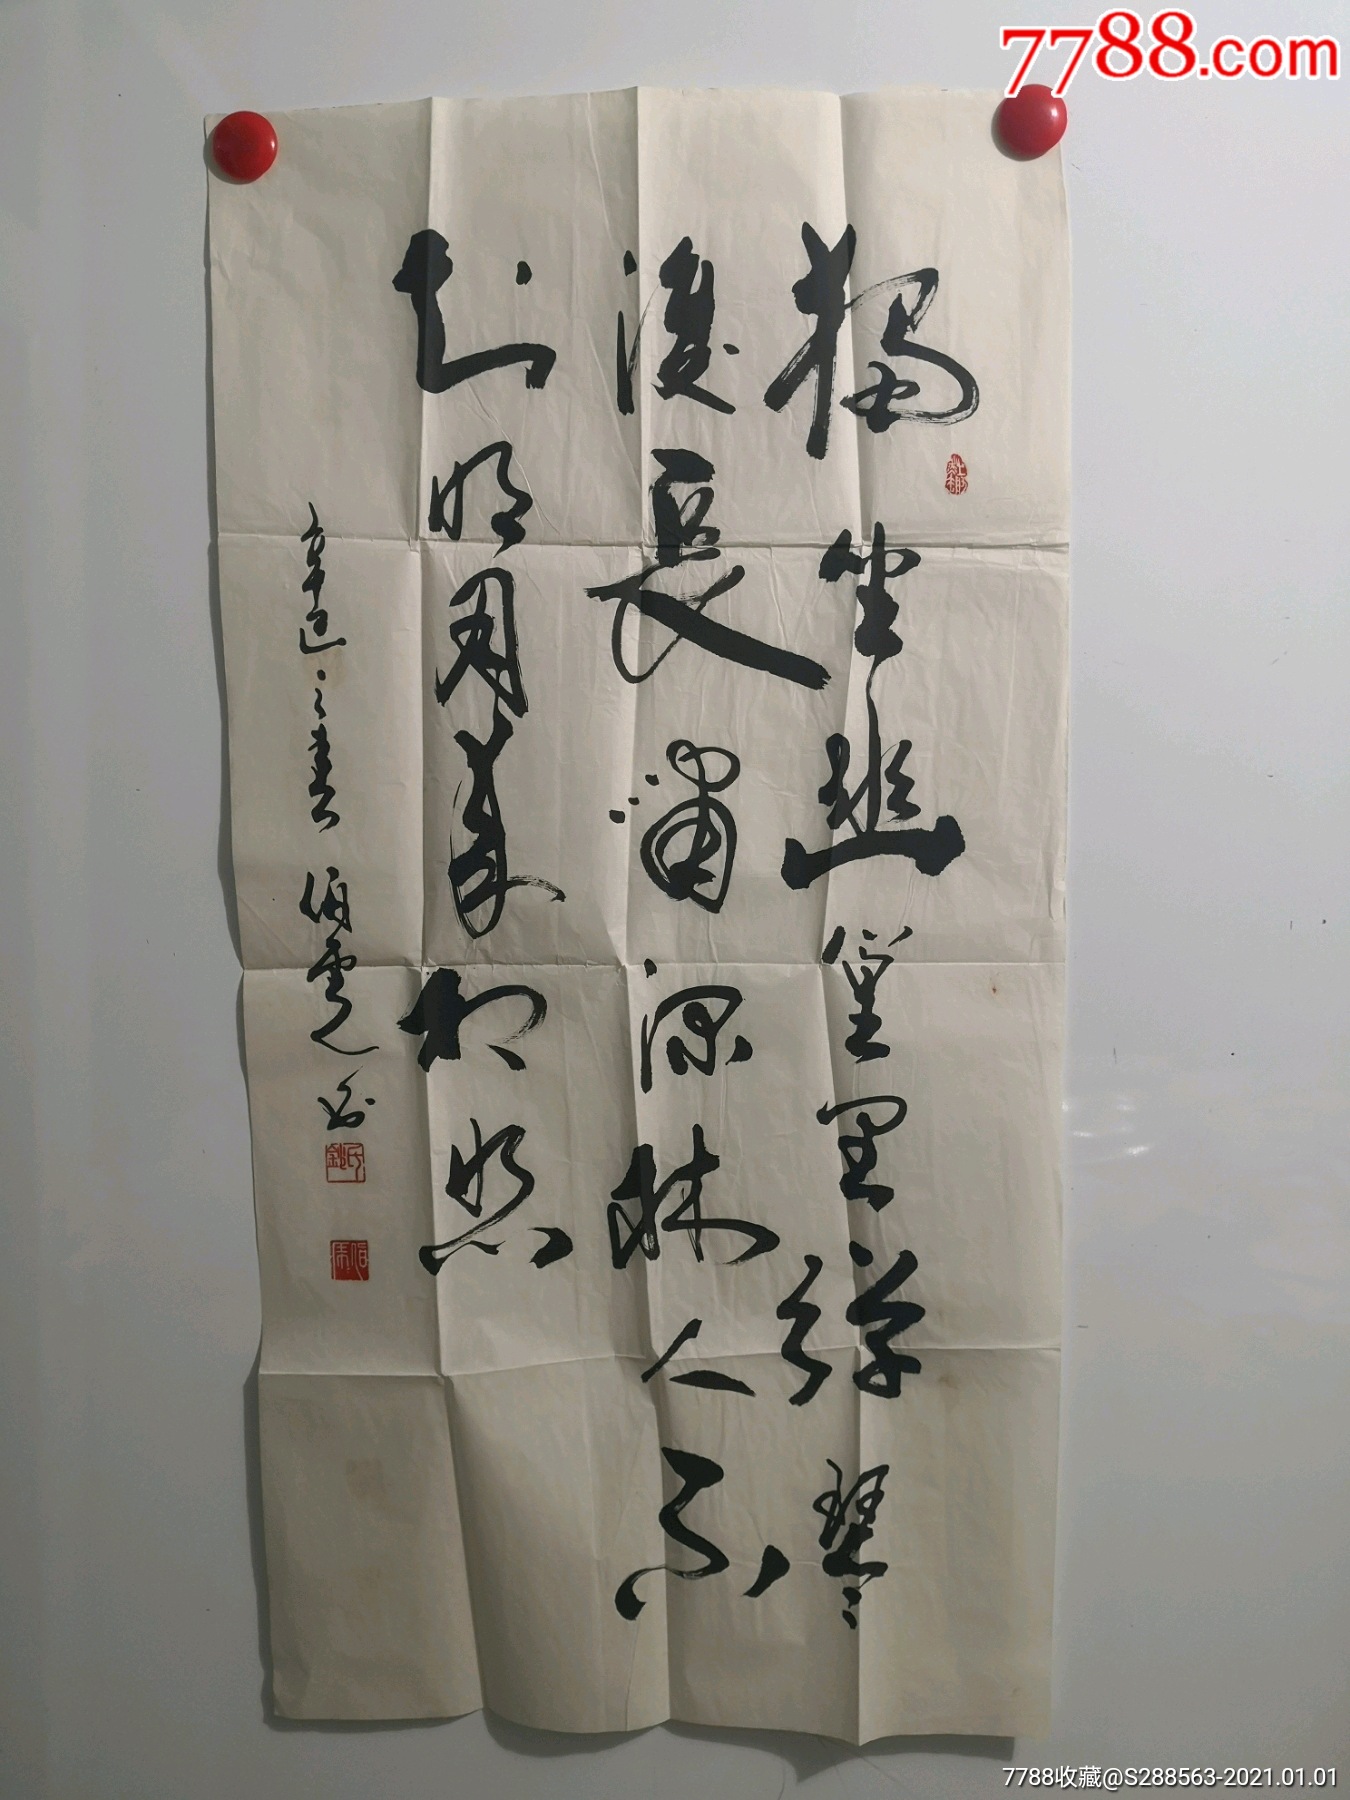 7788.com
独坐幽篁里弹琴
復長啸深林人不
知明月来相照
辛巳之春伯雲书
7788收藏@S288563-2021.01.01